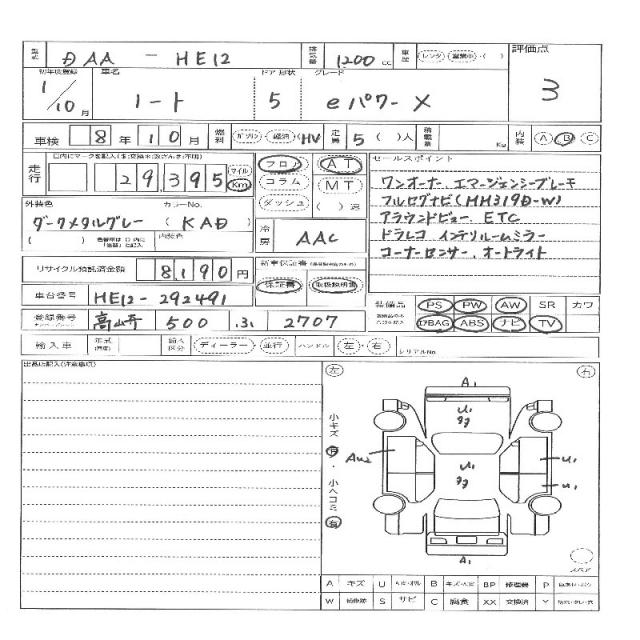 型式 DAA - HE12 排気量 1200 cc 車歴 レンタ・営業車・( ) 評価点
初年度登録 車名 ドア 形状 グレード
1/10月 ノート 5 eパワー X 3
車検 8年10月 燃料 ガソリン・軽油・HV 定員 5 ( )人 積載量 Kg 内装 A B C
走行 29,395 マイル Km フロア AT セールスポイント
コラム MT ワンオーナー エマージェンシーブレーキ
ダッシュ ( )速 フルセグナビ(MM319D-W)
外装色 カラーNo. アラウンドビュー. ETC
ダークメタルグレー (KAD) 冷房 AAC ドラレコ インテリルームミラー
( ) 内装色 コーナーセンサー. オートライト
リサイクル預託済金額 8,190円 新車保証書
保証書 取扱説明書
車台番号 HE12-292491 装備品 PS PW AW SR カワ
登録番号 高崎 500 31 2707 DBAG ABS ナビ TV
輸入車 年式 輸入区分 ディーラー・並行 ハンドル 左・右 シリアルNo.
出品店記入(注意事項) 左 右
A1
小キズ 有・小ヘコミ 有
U1
AU2 U1 U1
U1
A1
スペア
A キズ U B BP 修理跡 P
W S サビ C 腐食 XX 交換済 Y